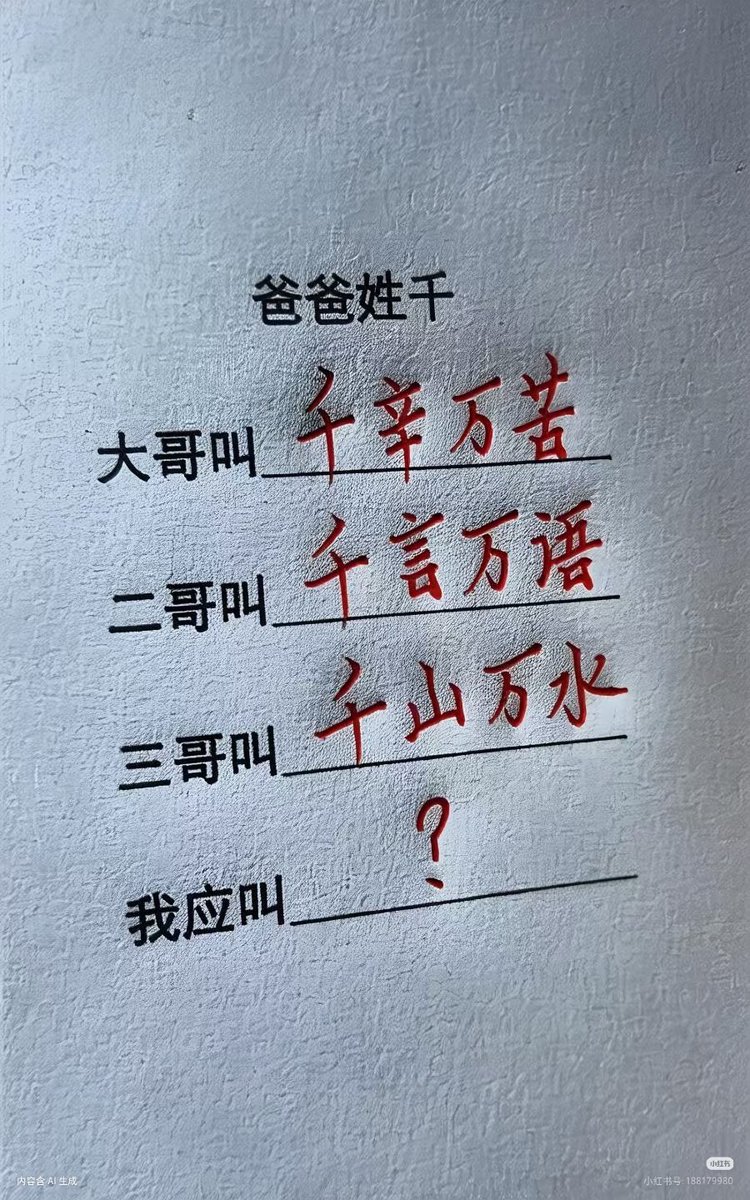 爸爸姓千
大哥叫千辛万苦
二哥叫千言万语
三哥叫千山万水
我应叫?
小红书
内容含 AI 生成
小红书号 188179980